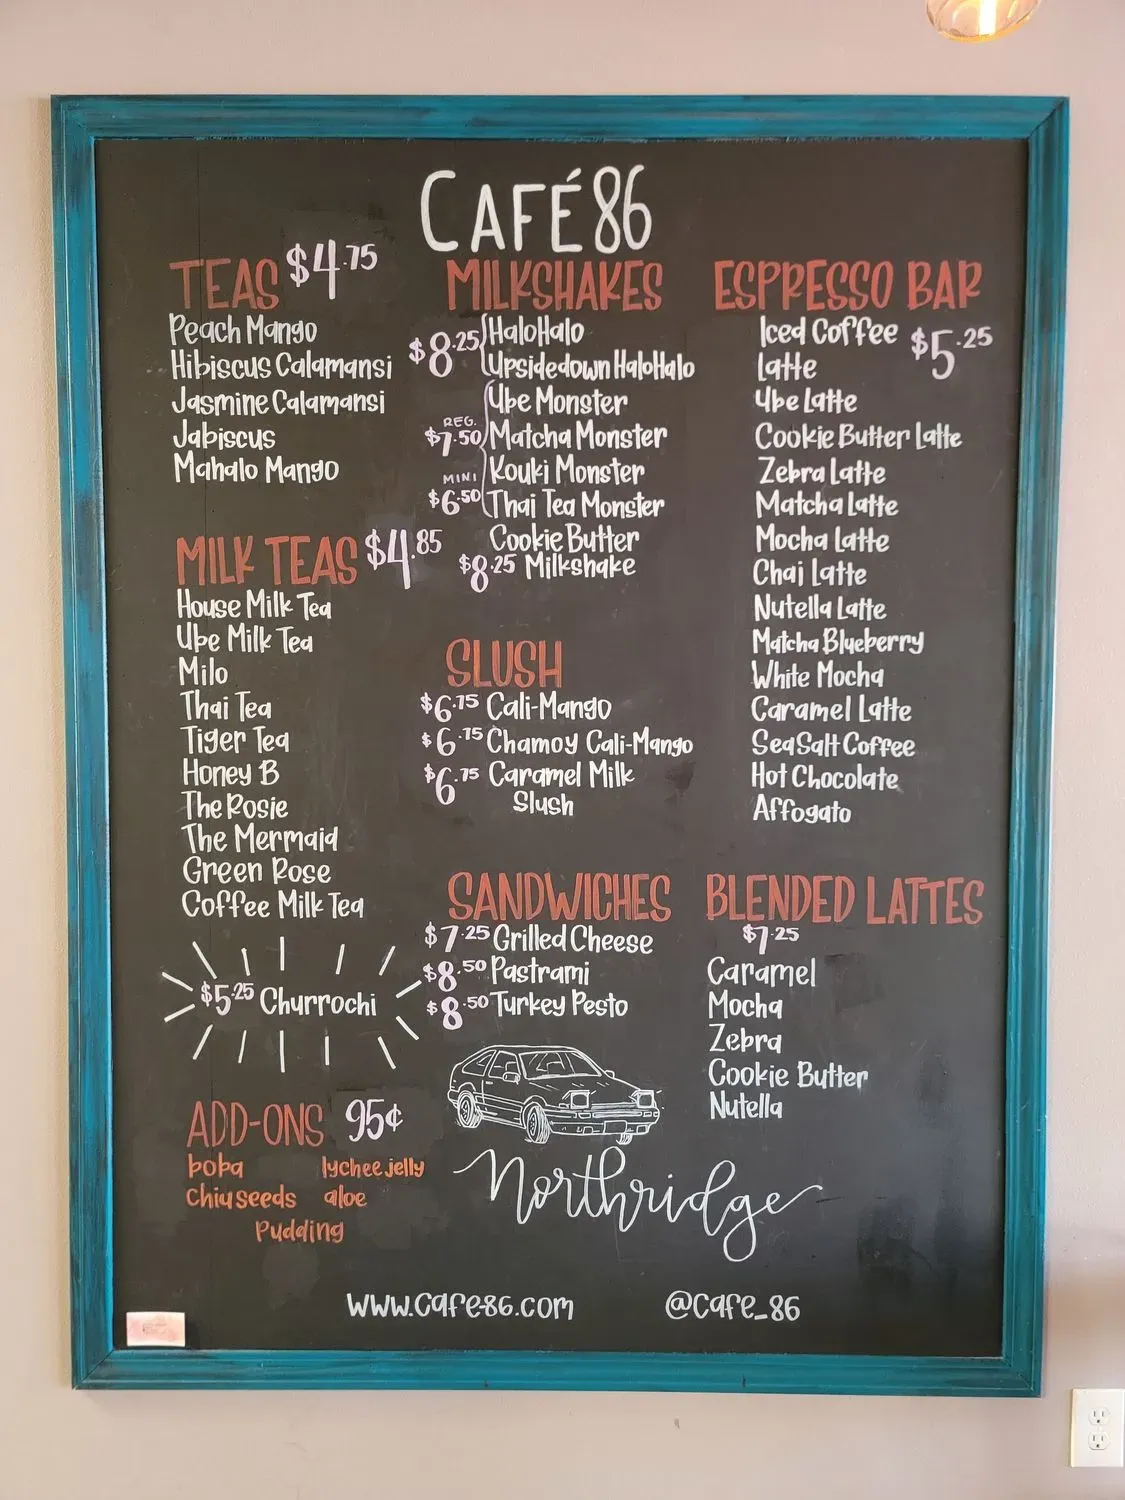 CAFÉ 86
TEAS $4.75
Peach Mango
Hibiscus Calamansi
Jasmine Calamansi
Jabiscus
Mahalo Mango
MILK TEAS $4.85
House Milk Tea
Ube Milk Tea
Milo
Thai Tea
Tiger Tea
Honey B
The Rosie
The Mermaid
Green Rose
Coffee Milk Tea
$5.25 Churrochi
ADD-ONS 95¢
boba lychee jelly
Chia seeds aloe
Pudding
MILKSHAKES
$8.25 HaloHalo
Upsidedown HaloHalo
Ube Monster
REG. $7.50 Matcha Monster
MINI Kouki Monster
$6.50 Thai Tea Monster
Cookie Butter
$8.25 Milkshake
SLUSH
$6.75 Cali-Mango
$6.75 Chamoy Cali-Mango
$6.75 Caramel Milk
Slush
SANDWICHES
$7.25 Grilled Cheese
$8.50 Pastrami
$8.50 Turkey Pesto
ESPRESSO BAR
Iced Coffee $5.25
Latte
Ube Latte
Cookie Butter Latte
Zebra Latte
Matcha Latte
Mocha Latte
Chai Latte
Nutella Latte
Matcha Blueberry
White Mocha
Caramel Latte
SeaSalt Coffee
Hot Chocolate
Affogato
BLENDED LATTES
$7.25
Caramel
Mocha
Zebra
Cookie Butter
Nutella
Northridge
www.cafe-86.com @cafe_86